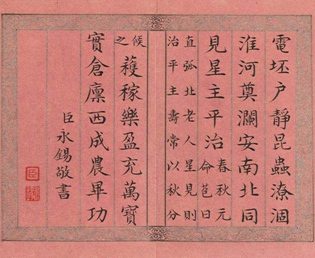 電坯户靜昆蟲潦涸
淮河奠瀾安南北同
見星主平治春秋元
命苞曰
直弧北老人星見則
治平主壽常以秋分
候
之
穫稼樂盈充萬寶
實倉廩西成農畢功
臣永錫敬書
臣